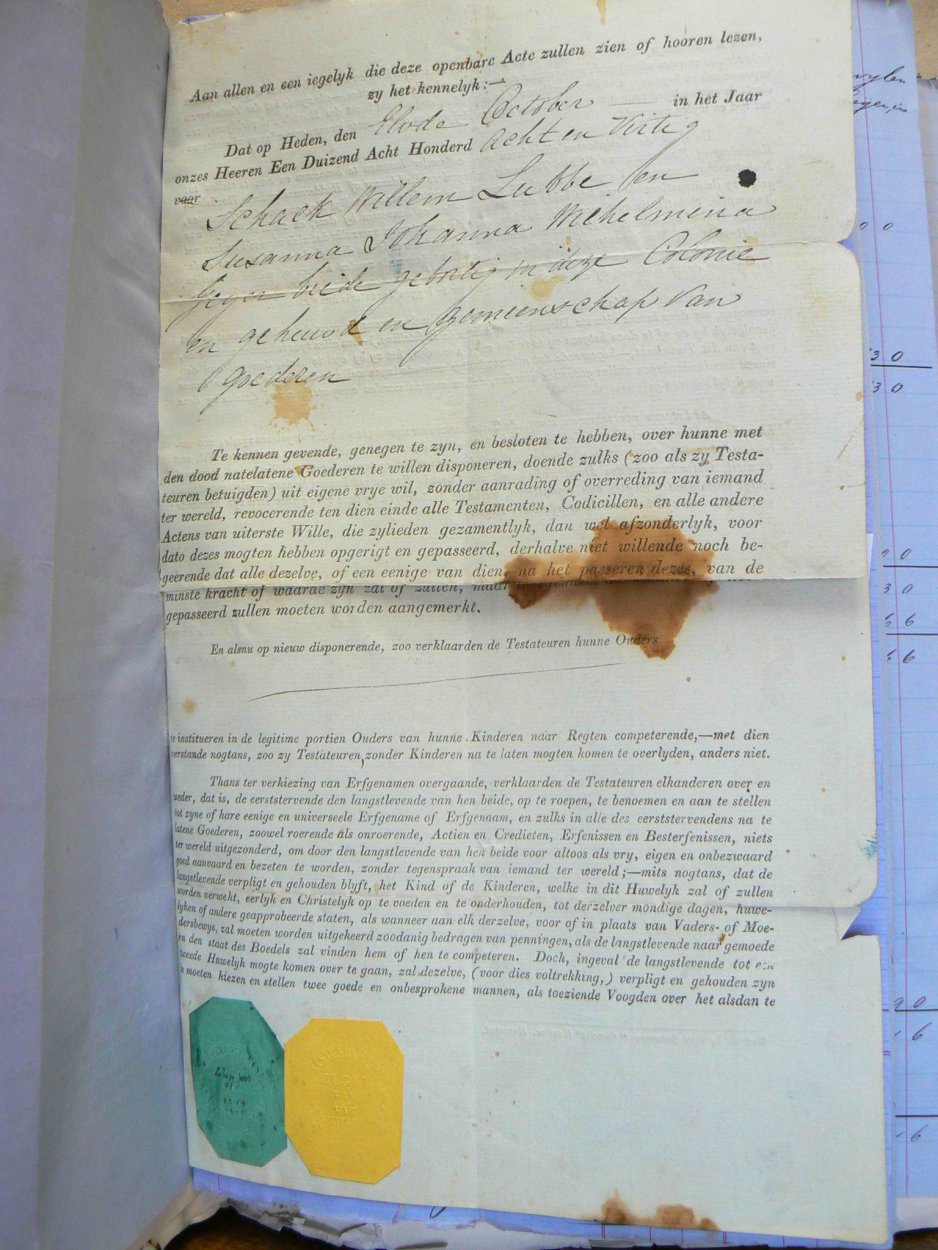 Aan allen en een iegelyk die deze openbare Acte zullen zien of hooren lezen,
zy het kennelyk:—
Dat op Heden, den Elvde October — in het Jaar
onzes Heeren Een Duizend Acht Honderd acht en Virtig
voor
Schack Willem Lubbe en
Susanna Johanna Wilhelmina
beide gebortig in deze Colonie
en gehuwd en gemeenschap van
goederen
Te kennen gevende, genegen te zyn, en besloten te hebben, over hunne met
den dood natelatene Goederen te willen disponeren, doende zulks (zoo als zy Testa-
teuren betuigden) uit eigene vrye wil, zonder aanrading of overreding van iemand
ter wereld, revocerende ten dien einde alle Testamenten, Codicillen, en alle andere
Actens van uiterste Wille, die zylieden gezamentlyk, dan wel afzonderlyk, voor
dato dezes mogten hebben opgerigt en gepasseerd, derhalve niet willende noch be-
geerende dat alle dezelve, of een eenige van dien, na het passeren dezes, van de
minste kracht of waarde zyn zal of zullen, maar
gepasseerd zullen moeten worden aangemerkt.
En alsnu op nieuw disponerende, zoo verklaarden de Testateuren hunne Ouders
te institueren in de legitime portien Ouders van hunne Kinderen naar Regten competerende,—met dien
verstande nogtans, zoo zy Testateuren zonder Kinderen na te laten mogten komen te overlyden, anders niet.
Thans ter verkiezing van Erfgenamen overgaande, verklaarden de Testateuren elkanderen over en
weder, dat is, de eerststervende den langstlevende van hen beide, op te roepen, te benoemen en aan te stellen
tot zyne of hare eenige en universeele Erfgename of Erfgenaam, en zulks in alle des eerststervendens na te
latene Goederen, zoowel roerende als onroerende, Actien en Credieten, Erfenissen en Besterfenissen, niets
ter wereld uitgezonderd, om door den langstlevende van hen beide voor altoos als vry, eigen en onbezwaard
goed aanvaard en bezeten te worden, zonder tegenspraak van iemand ter wereld;—mits nogtans, dat de
langstlevende verpligt en gehouden blyft, het Kind of de Kinderen, welke in dit Huwelyk zal of zullen
worden verwekt, eerlyk en Christelyk op te voeden en te onderhouden, tot derzelver mondige dagen, huwe-
lyken of andere geapprobeerde staten, als wanneer aan elk derzelve, voor of in plaats van Vaders- of Moe-
dersbewys, zal moeten worden uitgekeerd zoodanig bedragen van penningen, als de langstlevende naar gemoede
en den staat des Boedels zal vinden hem of hen te competeren. Doch, ingeval de langstlevende tot een
tweede Huwelyk mogte komen over te gaan, zal dezelve, (voor dies voltrekking,) verpligt en gehouden zyn
te moeten kiezen en stellen twee goede en onbesprokene mannen, als toeziende Voogden over het alsdan te